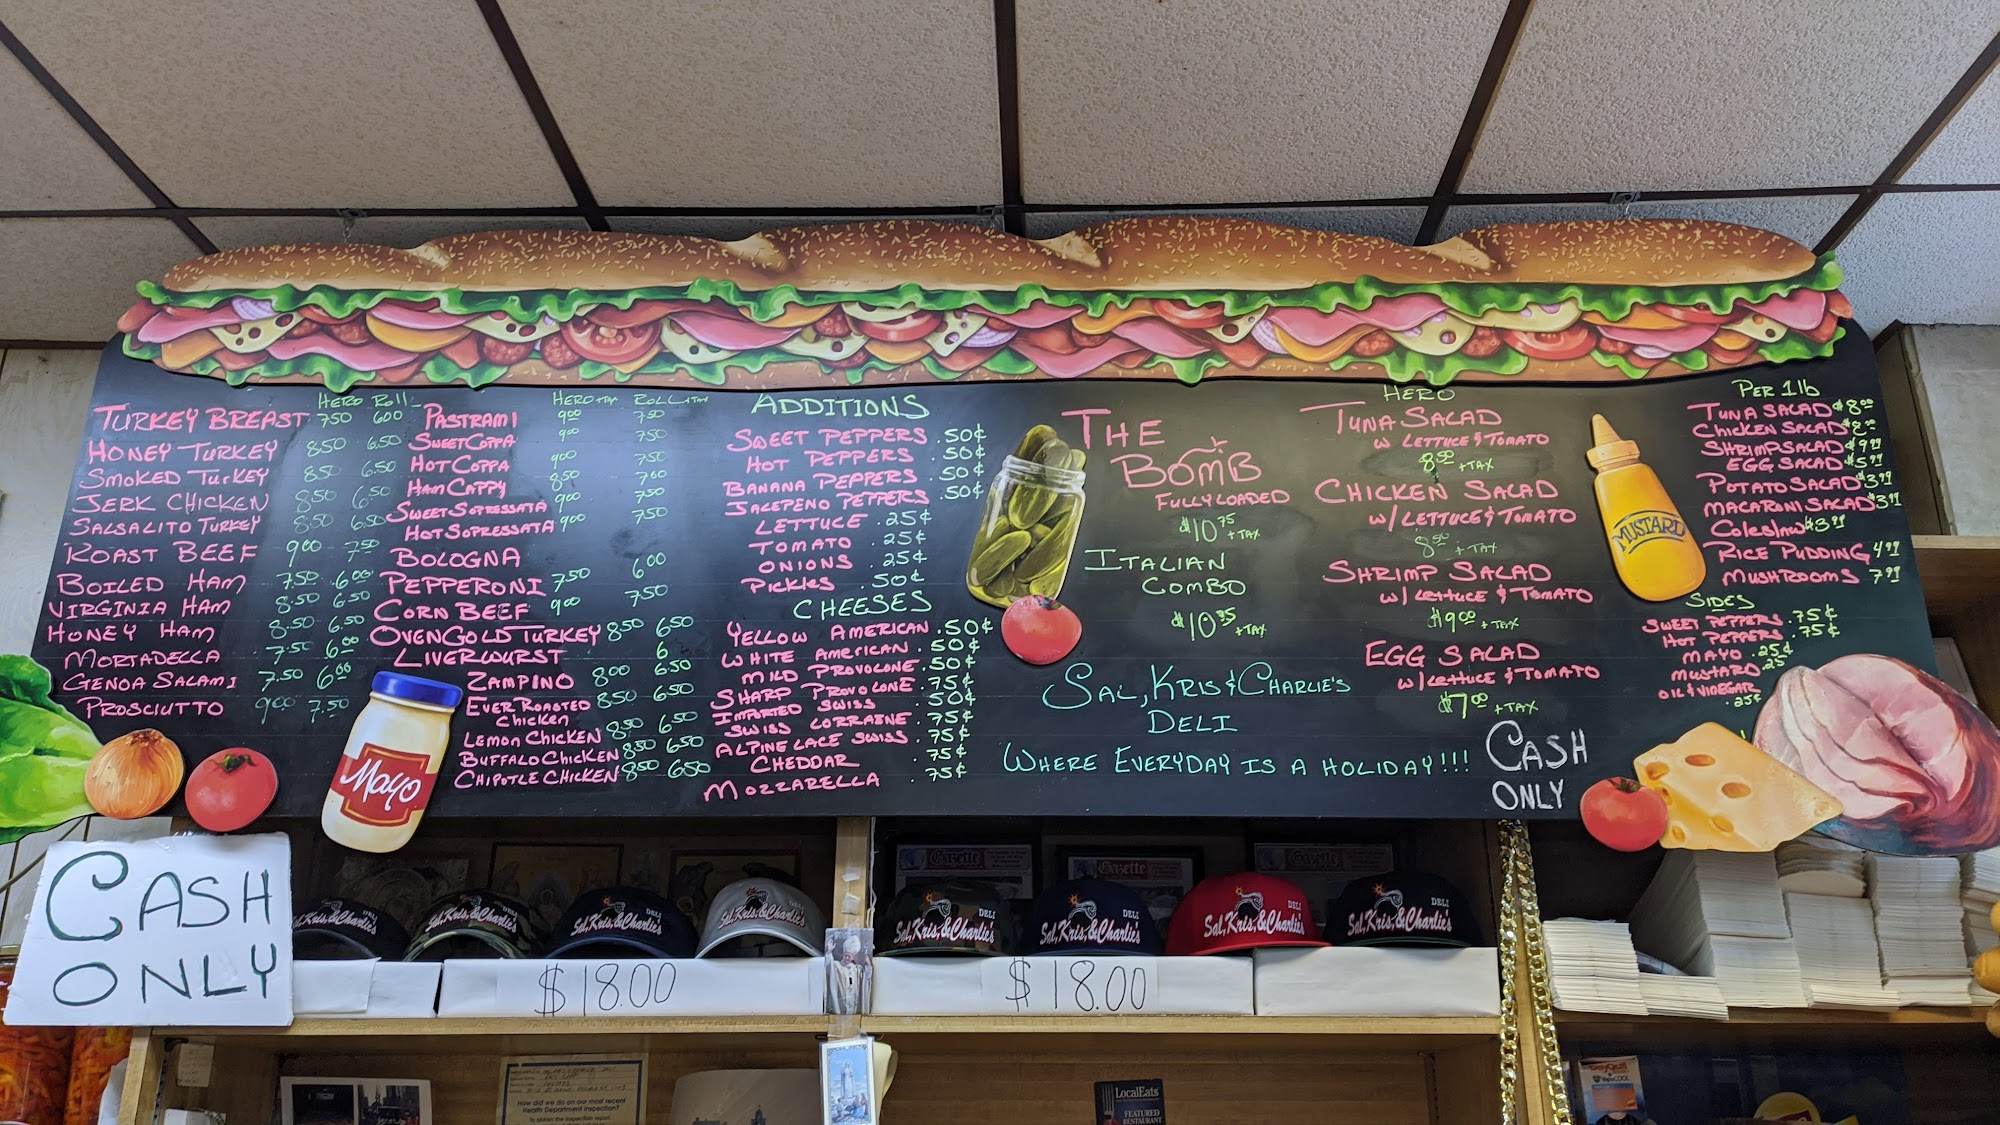 HERO ROLL
TURKEY BREAST 7.50 6.00
HONEY TURKEY 8.50 6.50
SMOKED TURKEY 8.50 6.50
JERK CHICKEN 8.50 6.50
SALSALITO TURKEY 8.50 6.50
ROAST BEEF 9.00 7.50
BOILED HAM 7.50 6.00
VIRGINIA HAM 8.50 6.50
HONEY HAM 8.50 6.50
MORTADELLA 7.50 6.00
GENOA SALAMI 7.50 6.00
PROSCIUTTO 9.00 7.50
HERO+TAX ROLL+TAX
PASTRAMI 9.00 7.50
SWEET COPPA 9.00 7.50
HOT COPPA 9.00 7.50
HAM CAPPY 8.50 7.00
SWEET SOPRESSATA 9.00 7.50
HOT SOPRESSATA 9.00 7.50
BOLOGNA
PEPPERONI 7.50 6.00
CORN BEEF 9.00 7.50
OVENGOLD TURKEY 8.50 6.50
LIVERWURST 6
ZAMPINO 8.00 6.50
EVER ROASTED CHICKEN 8.50 6.50
LEMON CHICKEN 8.50 6.50
BUFFALO CHICKEN 8.50 6.50
CHIPOTLE CHICKEN 8.50 6.50
ADDITIONS
SWEET PEPPERS .50¢
HOT PEPPERS .50¢
BANANA PEPPERS .50¢
JALEPENO PEPPERS .50¢
LETTUCE .25¢
TOMATO .25¢
ONIONS .25¢
PICKLES .50¢
CHEESES
YELLOW AMERICAN .50¢
WHITE AMERICAN .50¢
MILD PROVOLONE .50¢
SHARP PROVOLONE .75¢
IMPORTED SWISS .50¢
SWISS LORRAINE .75¢
ALPINE LACE SWISS .75¢
CHEDDAR .75¢
MOZZARELLA .75¢
THE
BOMB
FULLY LOADED
$10.75 +TAX
ITALIAN
COMBO
$10.35 +TAX
SAL, KRIS & CHARLIE'S
DELI
WHERE EVERYDAY IS A HOLIDAY!!!
HERO
TUNA SALAD
W LETTUCE & TOMATO
8.50 +TAX
CHICKEN SALAD
W/ LETTUCE & TOMATO
8.50 +TAX
SHRIMP SALAD
W/ LETTUCE & TOMATO
$9.00 +TAX
EGG SALAD
W/ LETTUCE & TOMATO
$7.00 +TAX
CASH
ONLY
PER 1 lb
TUNA SALAD $8.00
CHICKEN SALAD $8.00
SHRIMP SALAD $9.99
EGG SALAD $5.99
POTATO SALAD $3.99
MACARONI SALAD $3.99
COLESLAW $3.99
RICE PUDDING 4.99
MUSHROOMS 7.99
SIDES
SWEET PEPPERS .75¢
HOT PEPPERS .75¢
MAYO .25¢
MUSTARD .25
OIL & VINEGAR .25¢
Mayo
MUSTARD
CASH
ONLY
Gazette
Gazette
Gazette
DELI
Sal, Kris, & Charlie's
DELI
Sal, Kris, & Charlie's
DELI
Sal, Kris, & Charlie's
Sal, Kris, & Charlie's
DELI
Sal, Kris, & Charlie's
DELI
Sal, Kris, & Charlie's
DELI
Sal, Kris, & Charlie's
DELI
Sal, Kris, & Charlie's
$18.00
$18.00
How did we do on our most recent
Health Department inspection?
LocalEats
FEATURED
RESTAURANT